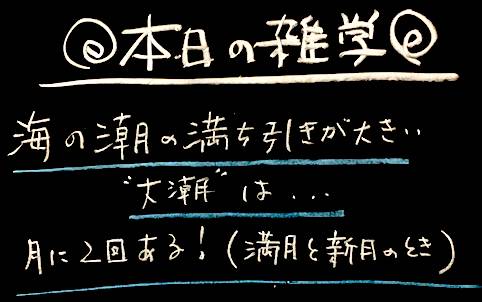 @本日の雑学@
海の潮の満ち引きが大きい
"大潮"は...
月に2回ある!(満月と新月のとき)